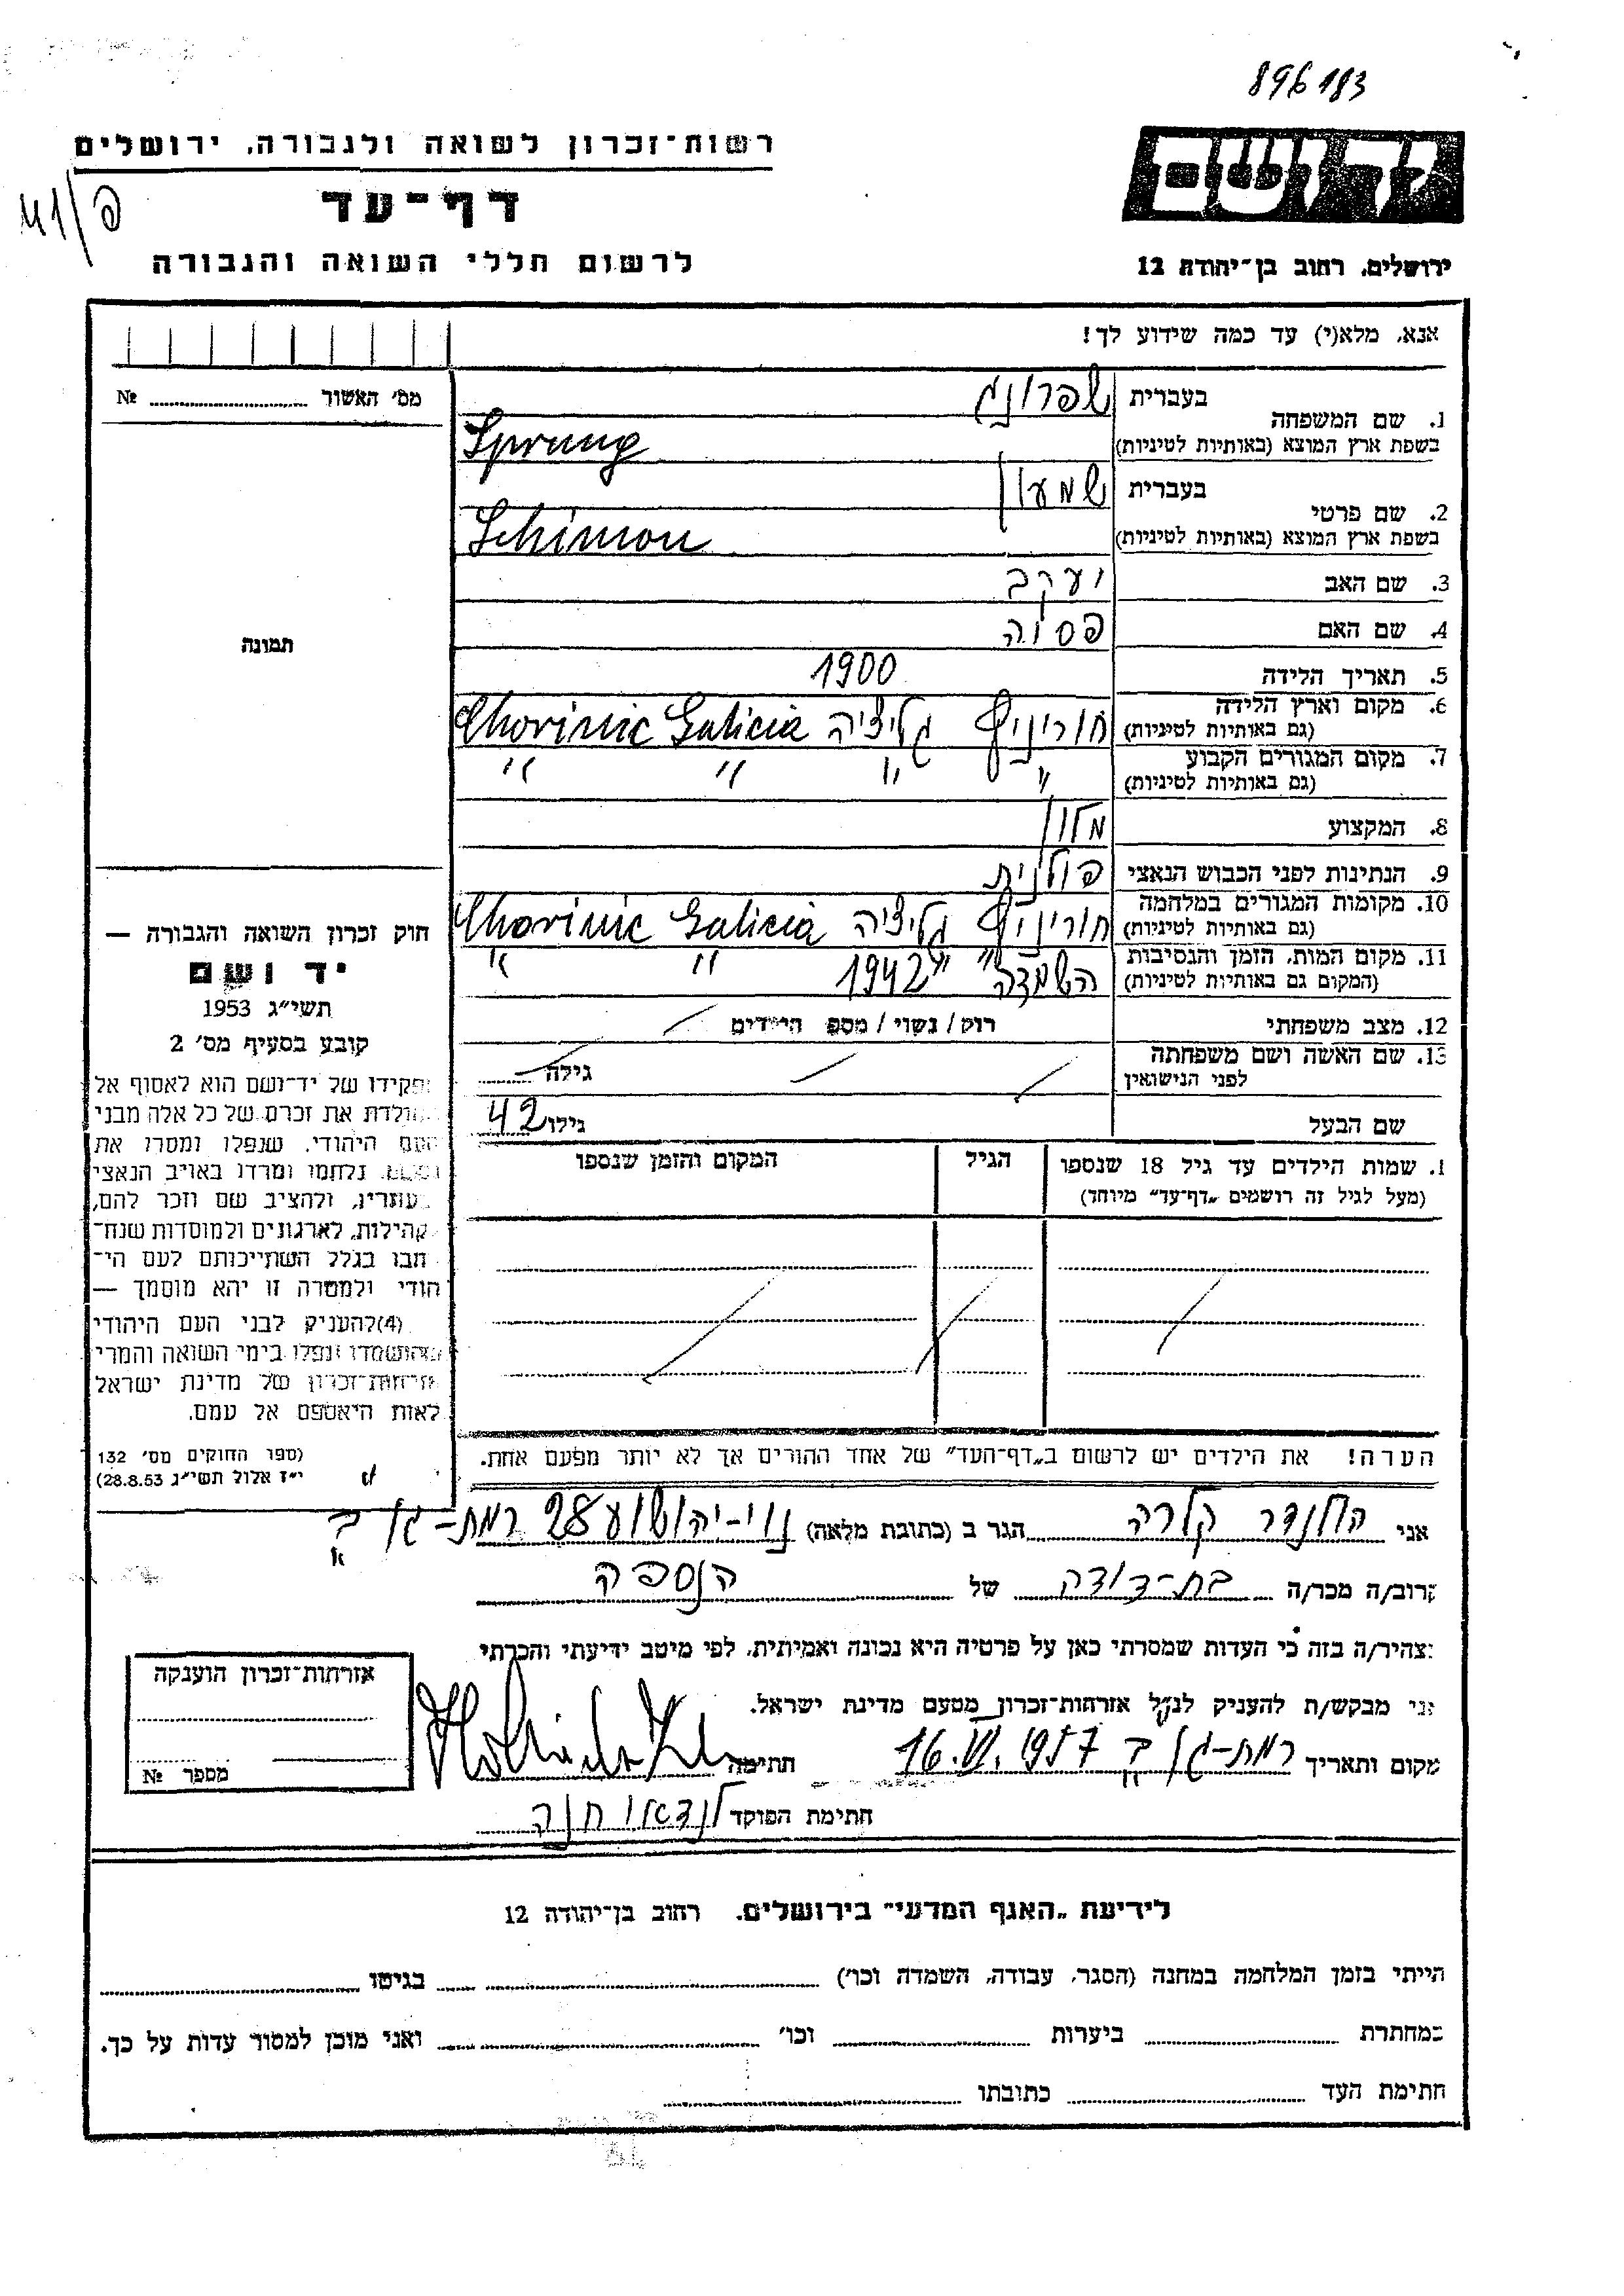 896183
רשות־זכרון לשואה ולגבורה, ירושלים
דף־עד
לרשום חללי השואה והגבורה
פ/41
ירושלים, רחוב בן־יהודה 12
אנא, מלא(י) עד כמה שידוע לך!
מס' האשור № 
1. שם המשפחה בעברית שפרונג
בשפת ארץ המוצא (באותיות לטיניות) Sprung
2. שם פרטי בעברית שמעון
בשפת ארץ המוצא (באותיות לטיניות) Schimon
3. שם האב יעקב
4. שם האם פסיה
5. תאריך הלידה 1900
6. מקום וארץ הלידה (גם באותיות לטיניות) חוריניץ גליציה Chorinic Galicia
7. מקום המגורים הקבוע (גם באותיות לטיניות) " " " "
8. המקצוע
9. הנתינות לפני הכבוש הנאצי פולנית
10. מקומות המגורים במלחמה (גם באותיות לטיניות) חוריניץ גליציה Chorinic Galicia
11. מקום המות, הזמן והנסיבות (המקום גם באותיות לטיניות) השמדה " " 1942 " "
12. מצב משפחתי רוק/נשוי/מספ הילדים
13. שם האשה ושם משפחתה לפני הנישואין גילה
שם הבעל גילו 42
תמונה
חוק זכרון השואה והגבורה —
יד ושם
תשי״ג 1953
קובע בסעיף מס' 2
פקידו של יד־ושם הוא לאסוף אל
המולדת את זכרם של כל אלה מבני
העם היהודי, שנפלו ומסרו את
נפשם, נלחמו ומרדו באויב הנאצי
ובעוזריו, ולהציב שם וזכר להם,
לקהילות, לארגונים ולמוסדות שנח־
רבו בגלל השתייכותם לעם הי־
הודי ולמטרה זו יהא מוסמך —
(4) להעניק לבני העם היהודי
שהושמדו ונפלו בימי השואה והמרי
אזרחות־זכרון של מדינת ישראל
לאות היאספם אל עמם.
(ספר החוקים מס' 132
י״ז אלול תשי״ג 28.8.53)
1. שמות הילדים עד גיל 18 שנספו הגיל המקום והזמן שנספו
(מעל לגיל זה רושמים „דף־עד״ מיוחד)
הערה! את הילדים יש לרשום ב„דף־העד״ של אחד ההורים אך לא יותר מפעם אחת.
אני הולנדר קלרה הגר ב (כתובת מלאה) נוי-יהושוע 28 רמת-גן ב'
קרוב/ה מכר/ה בת-דודה של הנספה
מצהיר/ה בזה כי העדות שמסרתי כאן על פרטיה היא נכונה ואמיתית, לפי מיטב ידיעתי והכרתי
אני מבקש/ת להעניק לנ״ל אזרחות־זכרון מטעם מדינת ישראל.
מקום ותאריך רמת-גן ב' 16.VI.1957 חתימה
חתימת הפוקד לנדאו חנה
אזרחות־זכרון הוענקה
מספר №
לידיעת „האגף המדעי״ בירושלים, רחוב בן־יהודה 12
הייתי בזמן המלחמה במחנה (הסגר, עבודה, השמדה וכו') בגיטו
במחתרת ביערות וכו' ואני מוכן למסור עדות על כך.
חתימת העד כתובתו